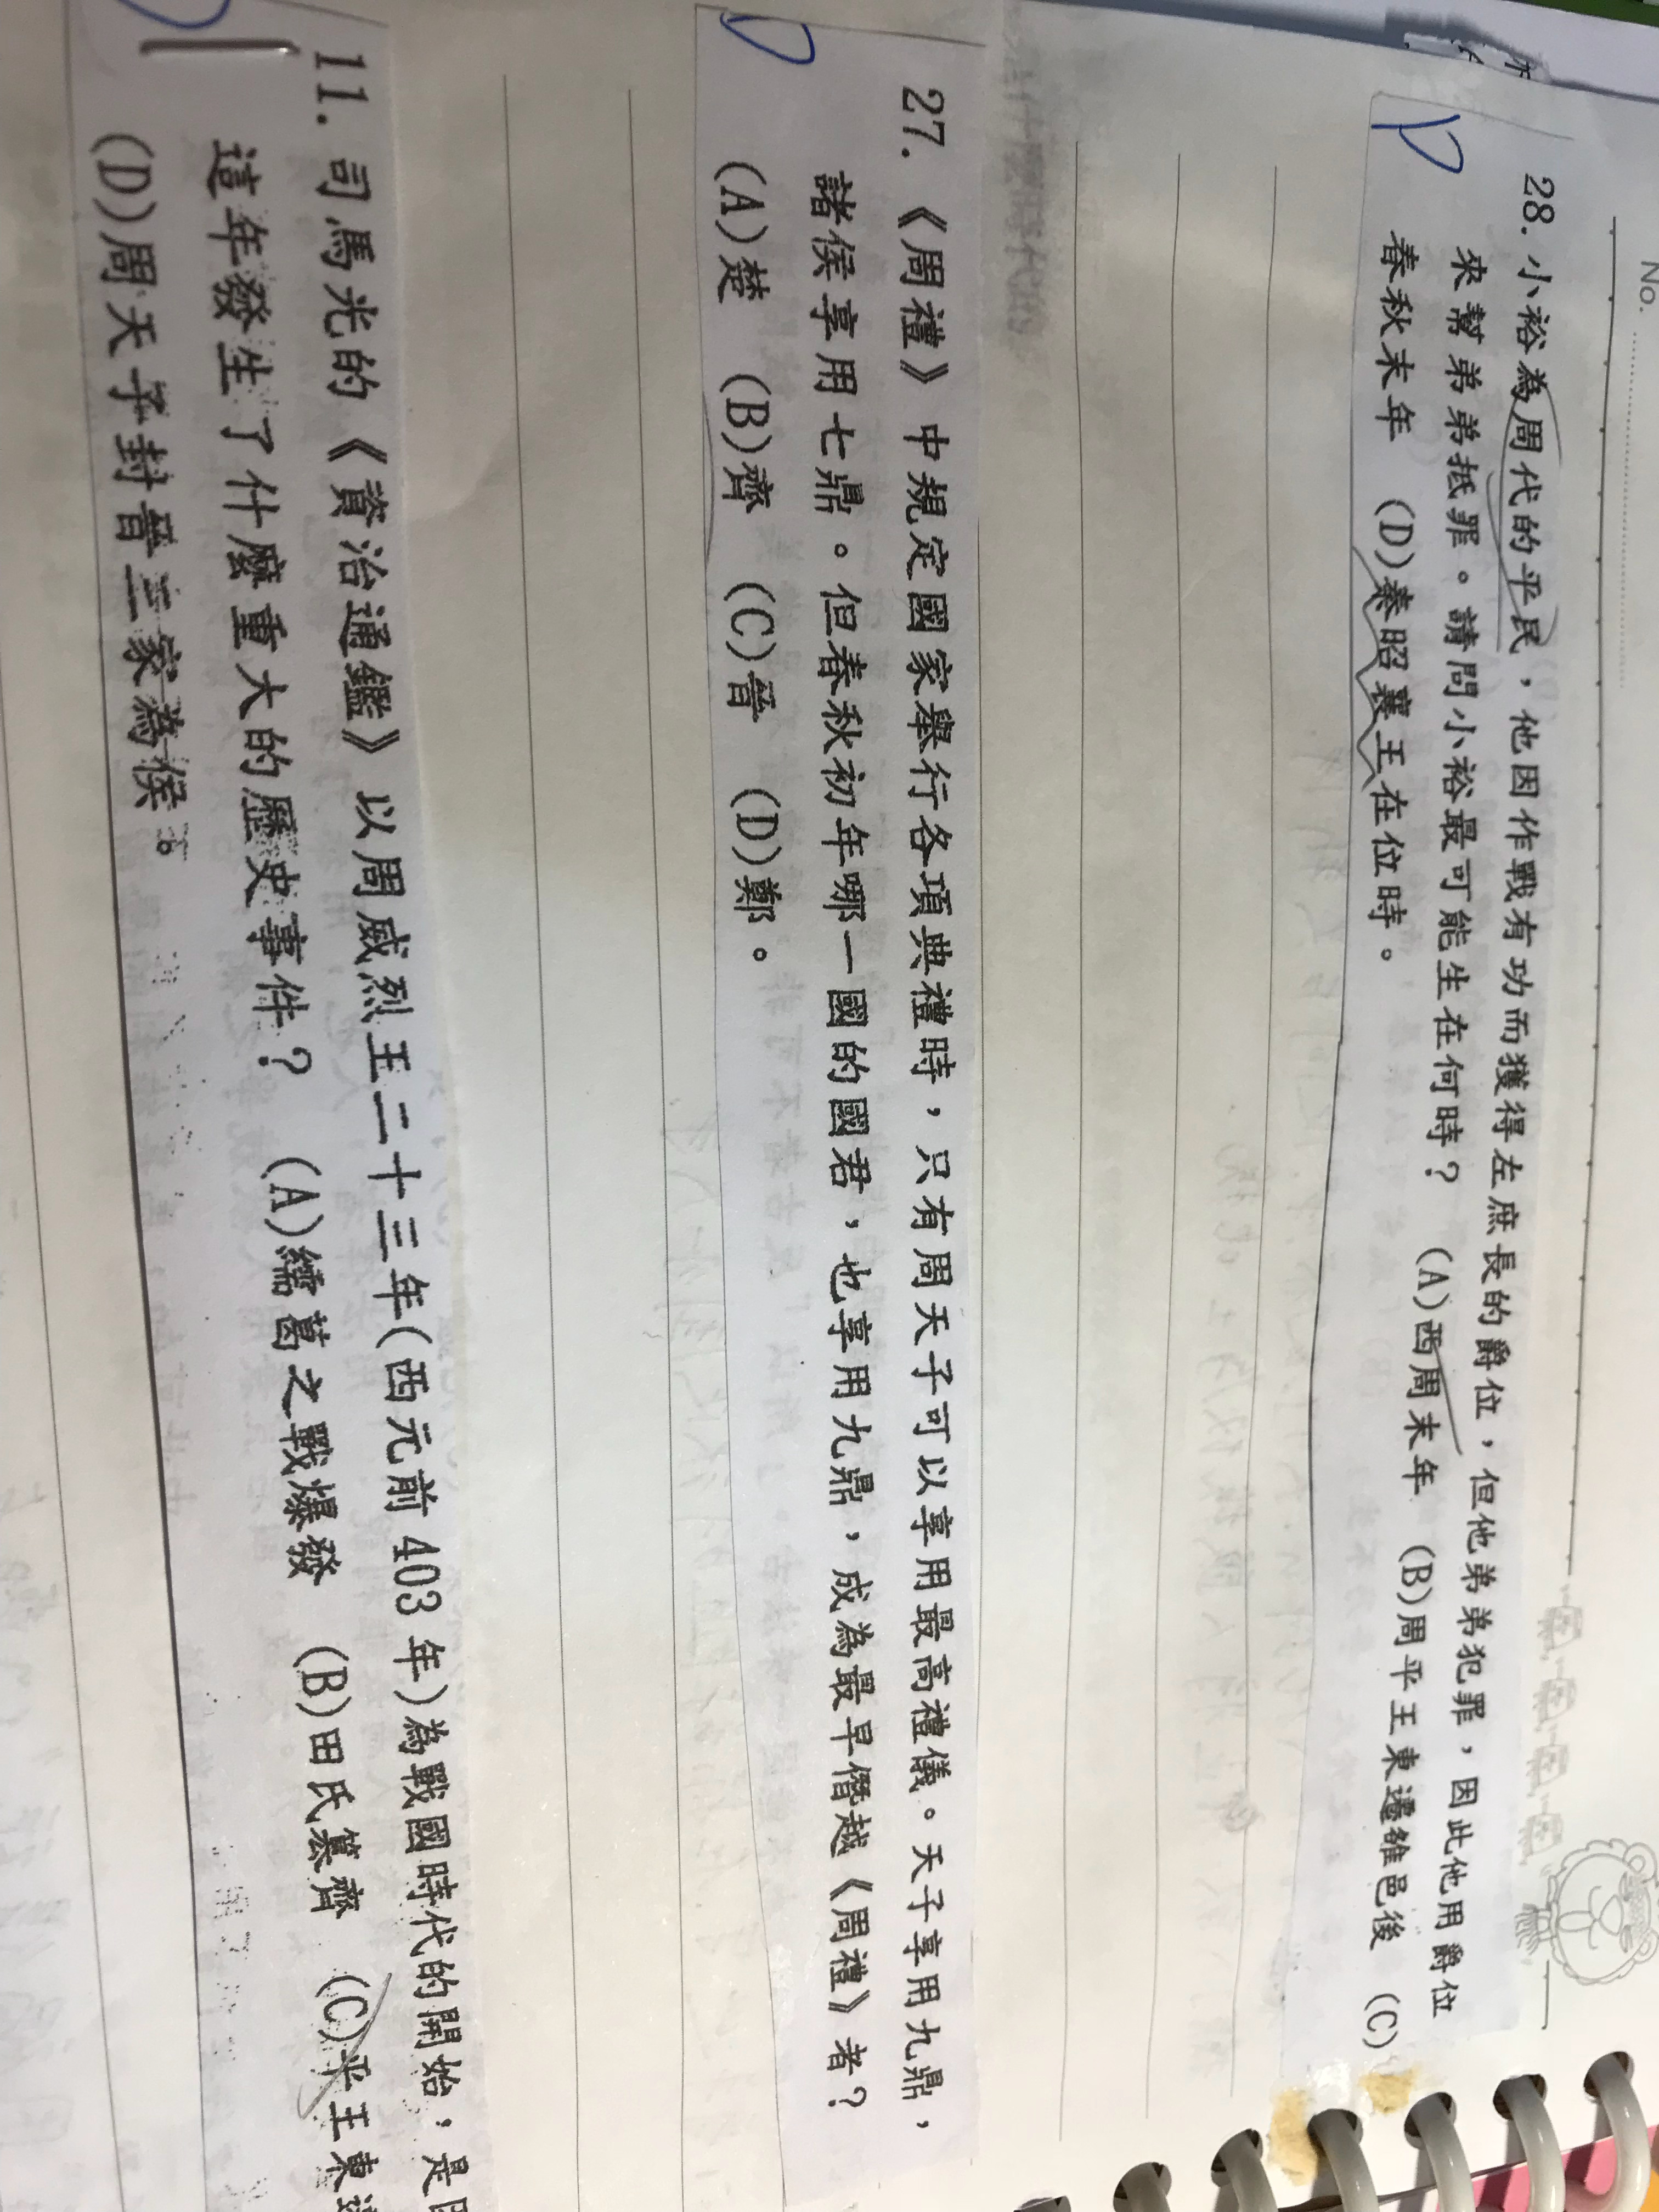 No.
D
28. 小裕為周代的平民，他因作戰有功而獲得左庶長的爵位，但他弟弟犯罪，因此他用爵位
來幫弟弟抵罪。請問小裕最可能生在何時？　(A)西周末年　(B)周平王東遷雒邑後　(C)
春秋末年　(D)秦昭襄王在位時。
D
27.《周禮》中規定國家舉行各項典禮時，只有周天子可以享用最高禮儀。天子享用九鼎，
諸侯享用七鼎。但春秋初年哪一國的國君，也享用九鼎，成為最早僭越《周禮》者？
(A)楚　(B)齊　(C)晉　(D)鄭。
D
11. 司馬光的《資治通鑑》以周威烈王二十三年(西元前 403 年)為戰國時代的開始，是
這年發生了什麼重大的歷史事件？　(A)繻葛之戰爆發　(B)田氏篡齊　(C)平王東
(D)周天子封晉三家為侯。